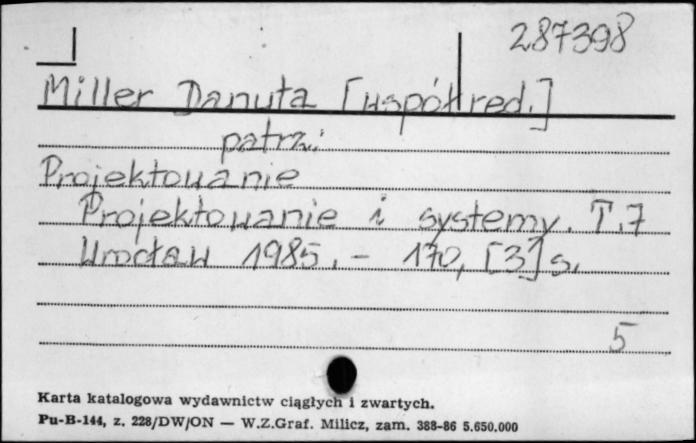 287398
Miller Danuta [współred.]
patrz:
Projektowanie
Projektowanie i systemy. T.7
Wrocław 1985. - 170, [3] s.
5
Karta katalogowa wydawnictw ciągłych i zwartych.
Pu-B-144, z. 228/DW/ON — W.Z.Graf. Milicz, zam. 388-86 5.650.000